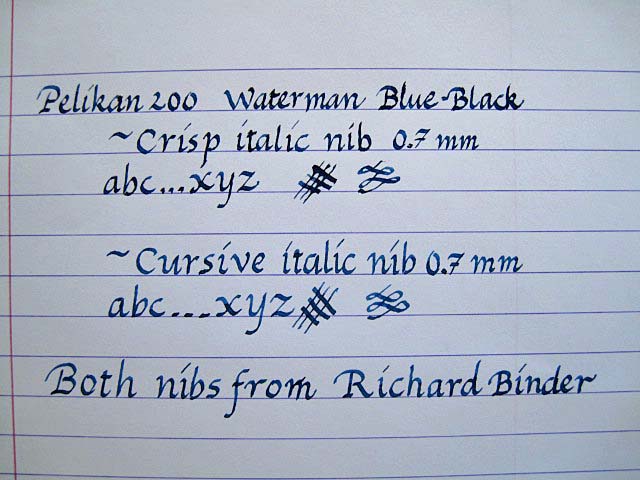 Pelikan 200 Waterman Blue-Black
~Crisp italic nib 0.7 mm
abc...xyz
~Cursive italic nib 0.7 mm
abc....xyz
Both nibs from Richard Binder